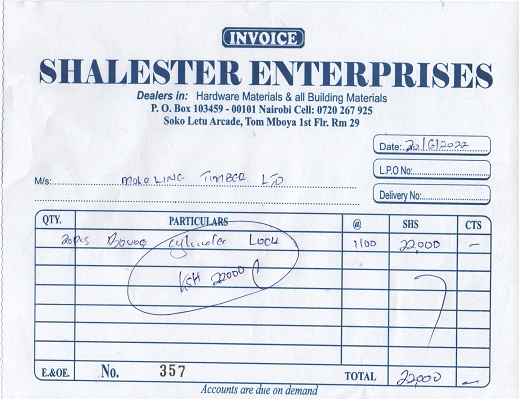 INVOICE
SHALESTER ENTERPRISES
Dealers in: Hardware Materials & all Building Materials
P. O. Box 103459 - 00101 Nairobi Cell: 0720 267 925
Soko Letu Arcade, Tom Mboya 1st Flr. Rm 29
Date: 20/6/2022
L.P.O No:
M/s: MOKO LINE TIMBER LTD
Delivery No:
QTY. PARTICULARS @ SHS CTS
20pcs Cylinder Lock 1100 22,000 -
KSH 22000
E.&OE. No. 357 TOTAL 22,000 -
Accounts are due on demand